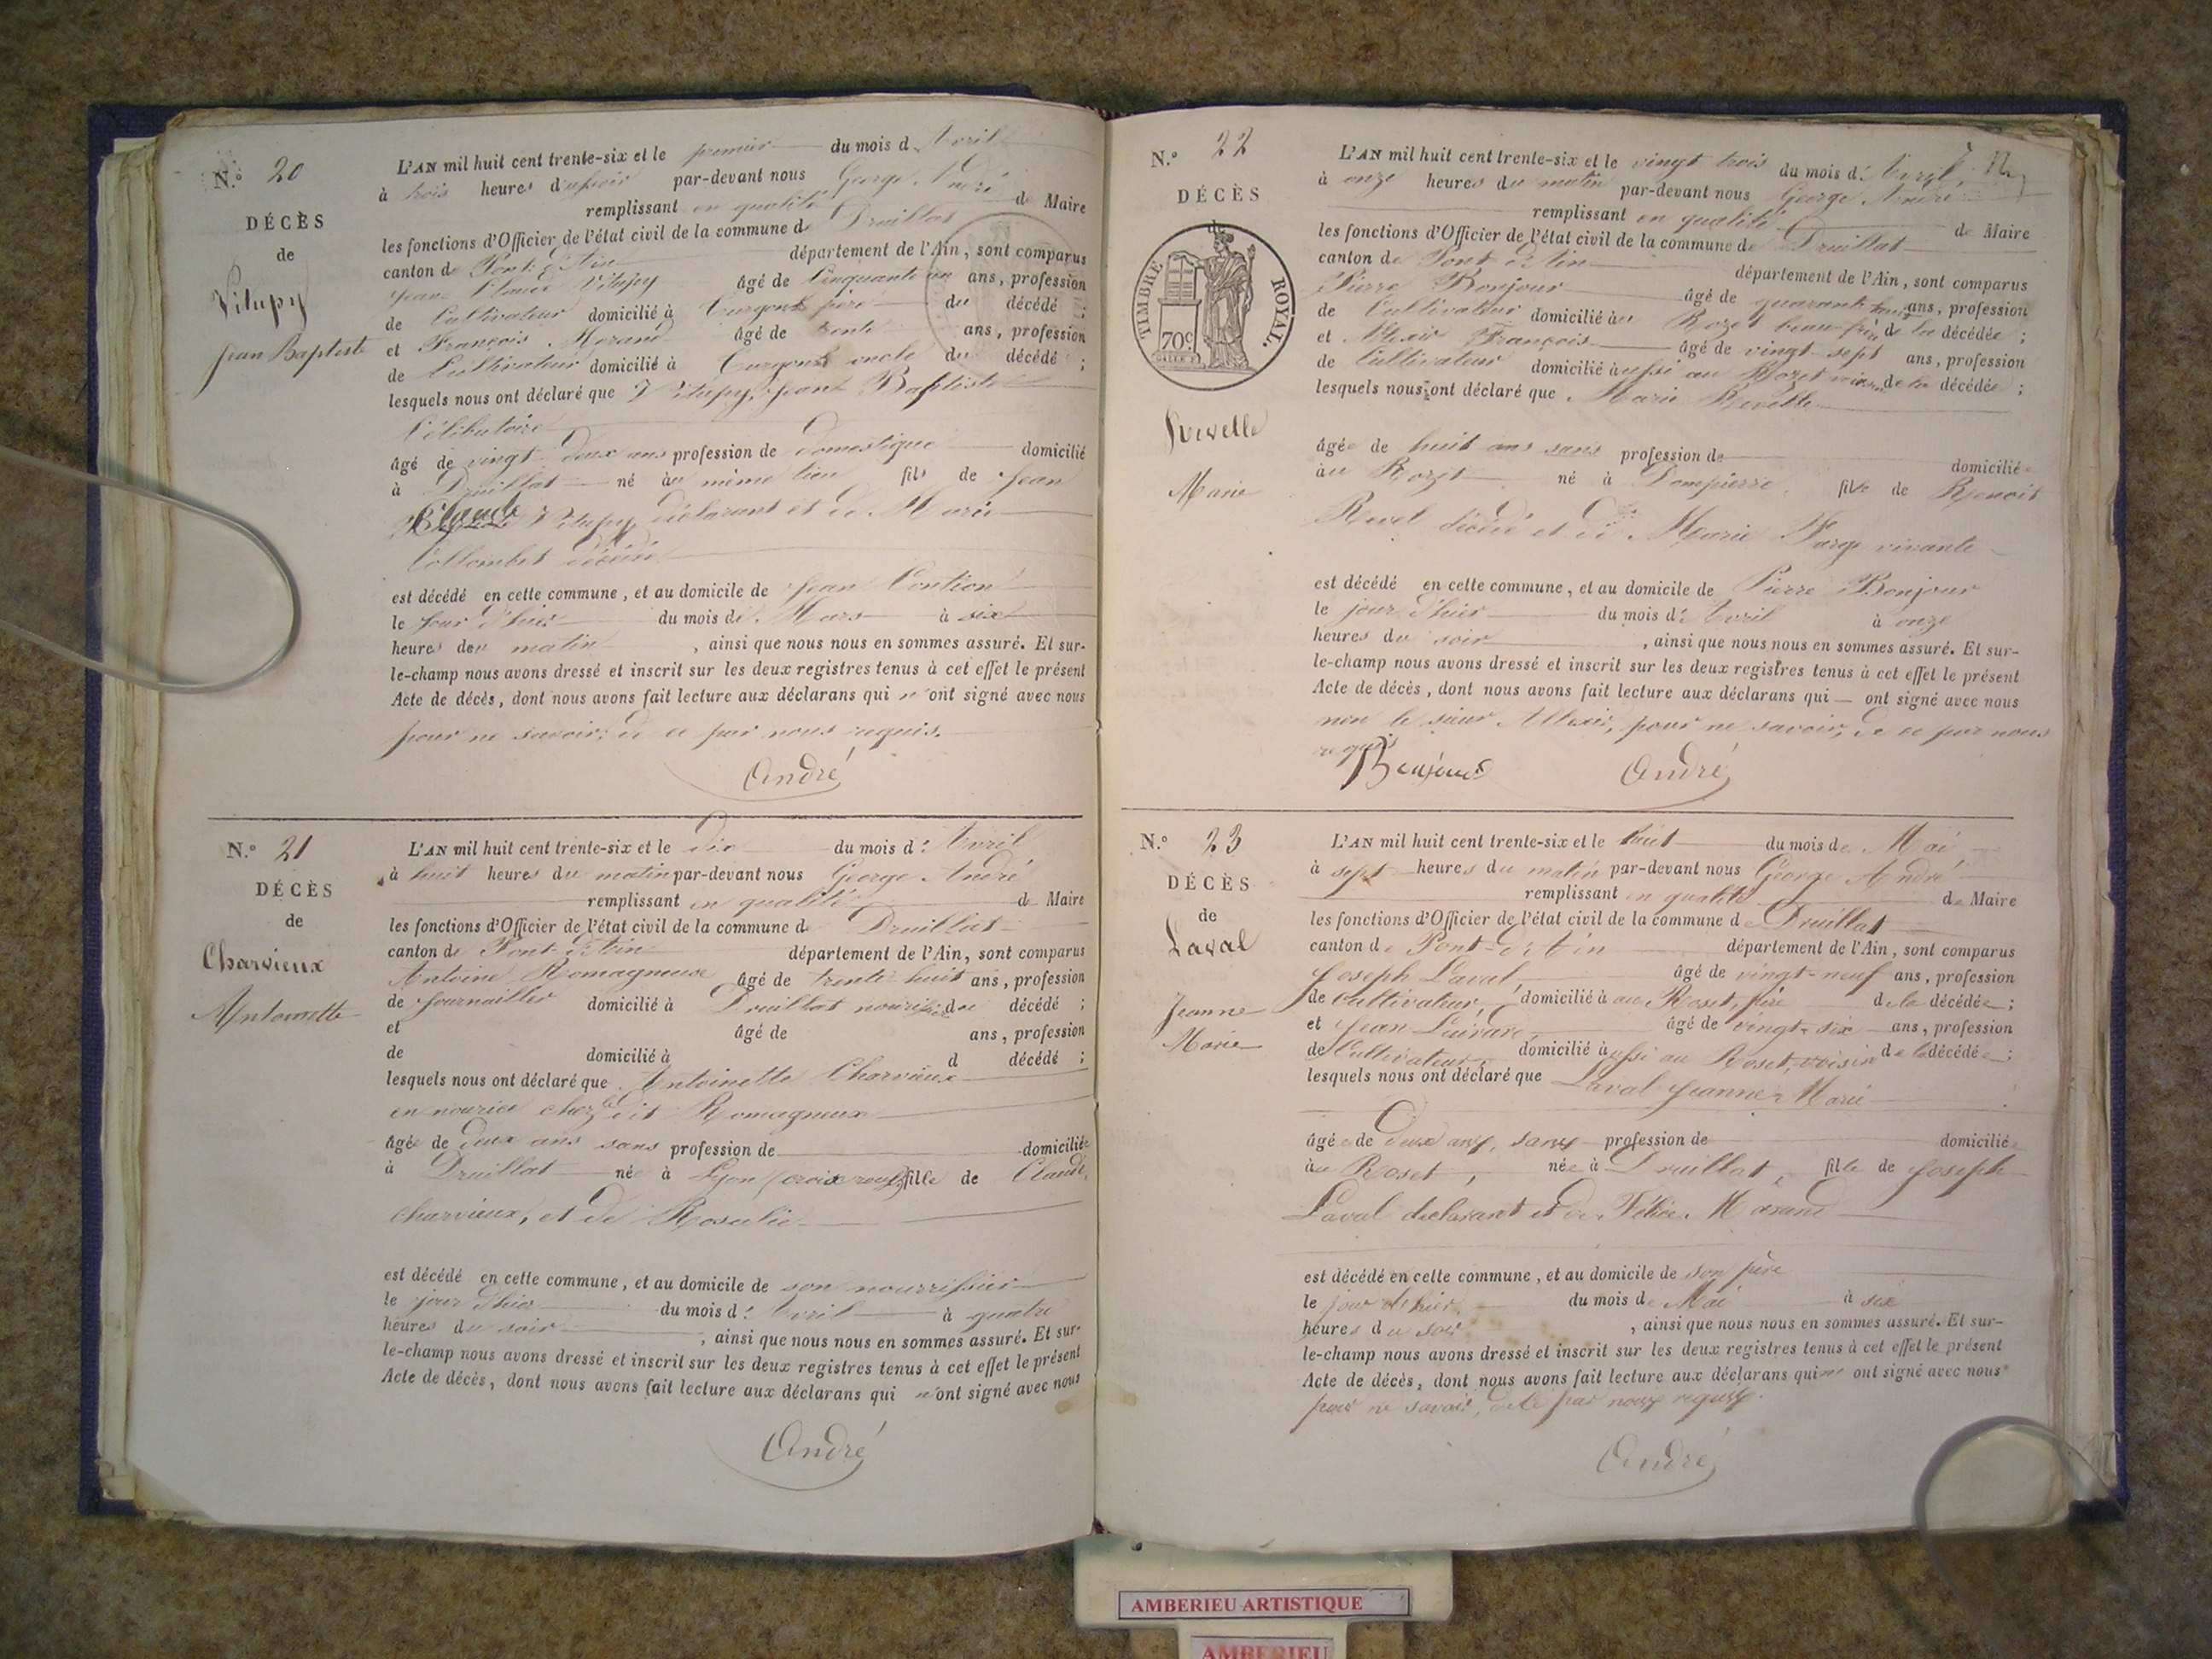 N.° 20
DÉCÈS
de
Vitupy
Jean Baptiste
L'AN mil huit cent trente-six et le premier du mois d'Avril
à trois heures par-devant nous George André
remplissant en qualité de Maire
les fonctions d'Officier de l'état civil de la commune de Druillat
canton de Pont d'Ain département de l'Ain, sont comparus
Jean Claude Vitupy âgé de cinquante un ans, profession
de Cultivateur domicilié à Turgon père du décédé ;
et François Morand âgé de trente ans, profession
de Cultivateur domicilié à Turgon oncle du décédé ;
lesquels nous ont déclaré que Vitupy, Jean Baptiste
Célibataire
âgé de vingt deux ans profession de domestique domicilié
à Druillat né au même lieu fils de Jean
Claude Vitupy déclarant et de Marie
Collombet décédé
est décédé en cette commune, et au domicile de Jean
le jour d'hier du mois de Mars à six
heures du matin, ainsi que nous nous en sommes assuré. Et sur-
le-champ nous avons dressé et inscrit sur les deux registres tenus à cet effet le présent
Acte de décès, dont nous avons fait lecture aux déclarans qui n'ont signé avec nous
pour ne savoir, de ce par nous requis.
André
N.° 21
DÉCÈS
de
Charvieux
Antoinette
L'AN mil huit cent trente-six et le dix du mois d'Avril
à huit heures du matin par-devant nous George André
remplissant en qualité de Maire
les fonctions d'Officier de l'état civil de la commune de Druillat
canton de Pont d'Ain département de l'Ain, sont comparus
Antoine Romagneux âgé de trente huit ans, profession
de Journaillier domicilié à Druillat nourissier du décédé ;
et âgé de ans, profession
de domicilié à d décédé ;
lesquels nous ont déclaré que Antoinette Charvieux
en nourice chez le dit Romagneux
âgée de deux ans sans profession de domiciliée
à Druillat né à Lyon (croix rousse) fille de Claude
Charvieux, et de Rosalie
est décédé en cette commune, et au domicile de son nourrissier
le jour d'hier du mois d'Avril à quatre
heures du soir, ainsi que nous nous en sommes assuré. Et sur-
le-champ nous avons dressé et inscrit sur les deux registres tenus à cet effet le présent
Acte de décès, dont nous avons fait lecture aux déclarans qui n'ont signé avec nous
André
N.° 22
DÉCÈS
TIMBRE ROYAL.
70c
Revelle
Marie
L'AN mil huit cent trente-six et le vingt trois du mois d'Avril
à onze heures du matin par-devant nous George André
remplissant en qualité de Maire
les fonctions d'Officier de l'état civil de la commune de Druillat
canton de Pont d'Ain département de l'Ain, sont comparus
Pierre Bonjour âgé de quarante huit ans, profession
de Cultivateur domicilié au Rozet beau-frère de la décédée ;
et Alexis François âgé de vingt sept ans, profession
de Cultivateur domicilié aussi au Rozet voisin de la décédée ;
lesquels nous ont déclaré que Marie Revelle
âgée de huit ans sans profession de domicilié
au Rozet né à Dompierre fille de Benoit
Revel décédé et de Marie Farge vivante
est décédé en cette commune, et au domicile de Pierre Bonjour
le jour d'hier du mois d'Avril à onze
heures du soir, ainsi que nous nous en sommes assuré. Et sur-
le-champ nous avons dressé et inscrit sur les deux registres tenus à cet effet le présent
Acte de décès, dont nous avons fait lecture aux déclarans qui ont signé avec nous
non le sieur Allexis, pour ne savoir, de ce par nous
requis
Bonjour André
N.° 23
DÉCÈS
de
Laval
Jeanne
Marie
L'AN mil huit cent trente-six et le huit du mois de Mai
à sept heures du matin par-devant nous George André
remplissant en qualité de Maire
les fonctions d'Officier de l'état civil de la commune de Druillat
canton de Pont-d'Ain département de l'Ain, sont comparus
Joseph Laval, âgé de vingt-neuf ans, profession
de cultivateur, domicilié au Roset, père de la décédée ;
et Jean âgé de vingt-six ans, profession
de Cultivateur domicilié aussi au Roset, voisin de la décédée ;
lesquels nous ont déclaré que Laval Jeanne Marie
âgée de deux ans, sans profession de domicilié
au Roset, née à Druillat, fille de Joseph
Laval déclarant et de Félise Morand
est décédé en cette commune, et au domicile de son père
le jour d'hier du mois de Mai à six
heures du soir, ainsi que nous nous en sommes assuré. Et sur-
le-champ nous avons dressé et inscrit sur les deux registres tenus à cet effet le présent
Acte de décès, dont nous avons fait lecture aux déclarans qui n'ont signé avec nous
pour ne savoir, de ce par nous requis.
André
AMBERIEU ARTISTIQUE
AMBERIEU